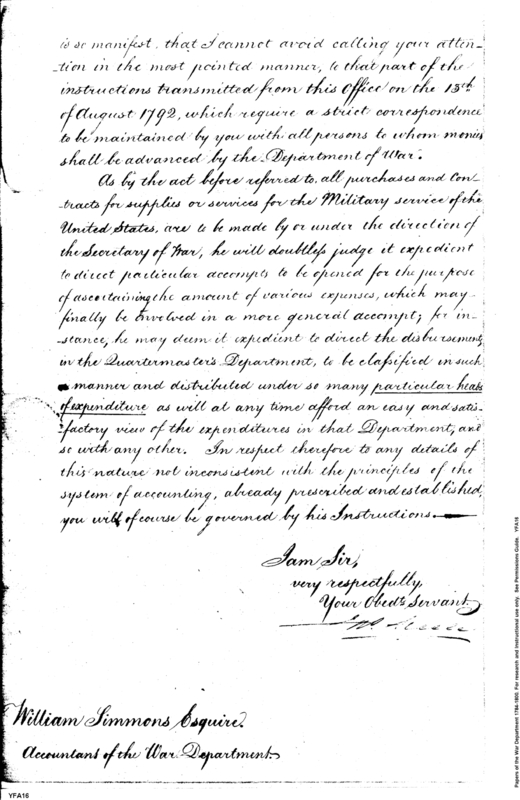 is so manifest, that I cannot avoid calling your atten-
tion in the most pointed manner, to that part of the
instructions transmitted from this Office on the 13th
of August 1792, which require a strict correspondence
to be maintained by you with all persons to whom monies
shall be advanced by the Department of War.
As by the act before referred to, all purchases and Con-
tracts for supplies or services for the Military service of the
United States, are to be made by or under the direction of
the Secretary of War, he will doubtless judge it expedient
to direct particular accompts to be opened for the purpose
of ascertaining the amount of various expenses, which may
finally be involved in a more general accompt; for in-
stance, he may deem it expedient to direct the disbursements
in the Quartermaster's Department, to be classified in such
manner and distributed under so many particular heads
of expenditure as will at any time afford an easy and satis-
factory view of the expenditures in that Department, and
so with any other. In respect therefore to any details of
this nature not inconsistent with the principles of the
system of accounting, already prescribed and established,
you will of course be governed by his Instructions.
I am Sir,
very respectfully,
Your Obedt. Servant,
William Simmons Esquire.
Accountant of the War Department.
YFA16
Papers of the War Department 1784-1800. For research and instructional use only. See Permissions Guide. YFA16